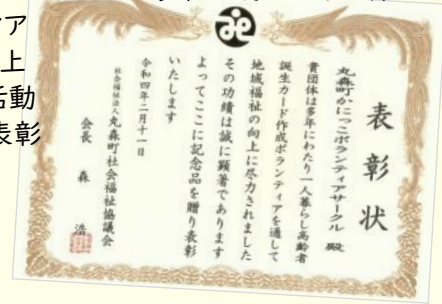 ア
上
活動
表彰
表彰状
丸森町かにっこボランティアサークル 殿
貴団体は多年にわたり一人暮らし高齢者
誕生カード作成ボランティアを通して
地域福祉の向上に尽力されました
その功績は誠に顕著であります
よってここに記念品を贈り表彰
いたします
令和四年二月十一日
社会福祉法人 丸森町社会福祉協議会
会長 森